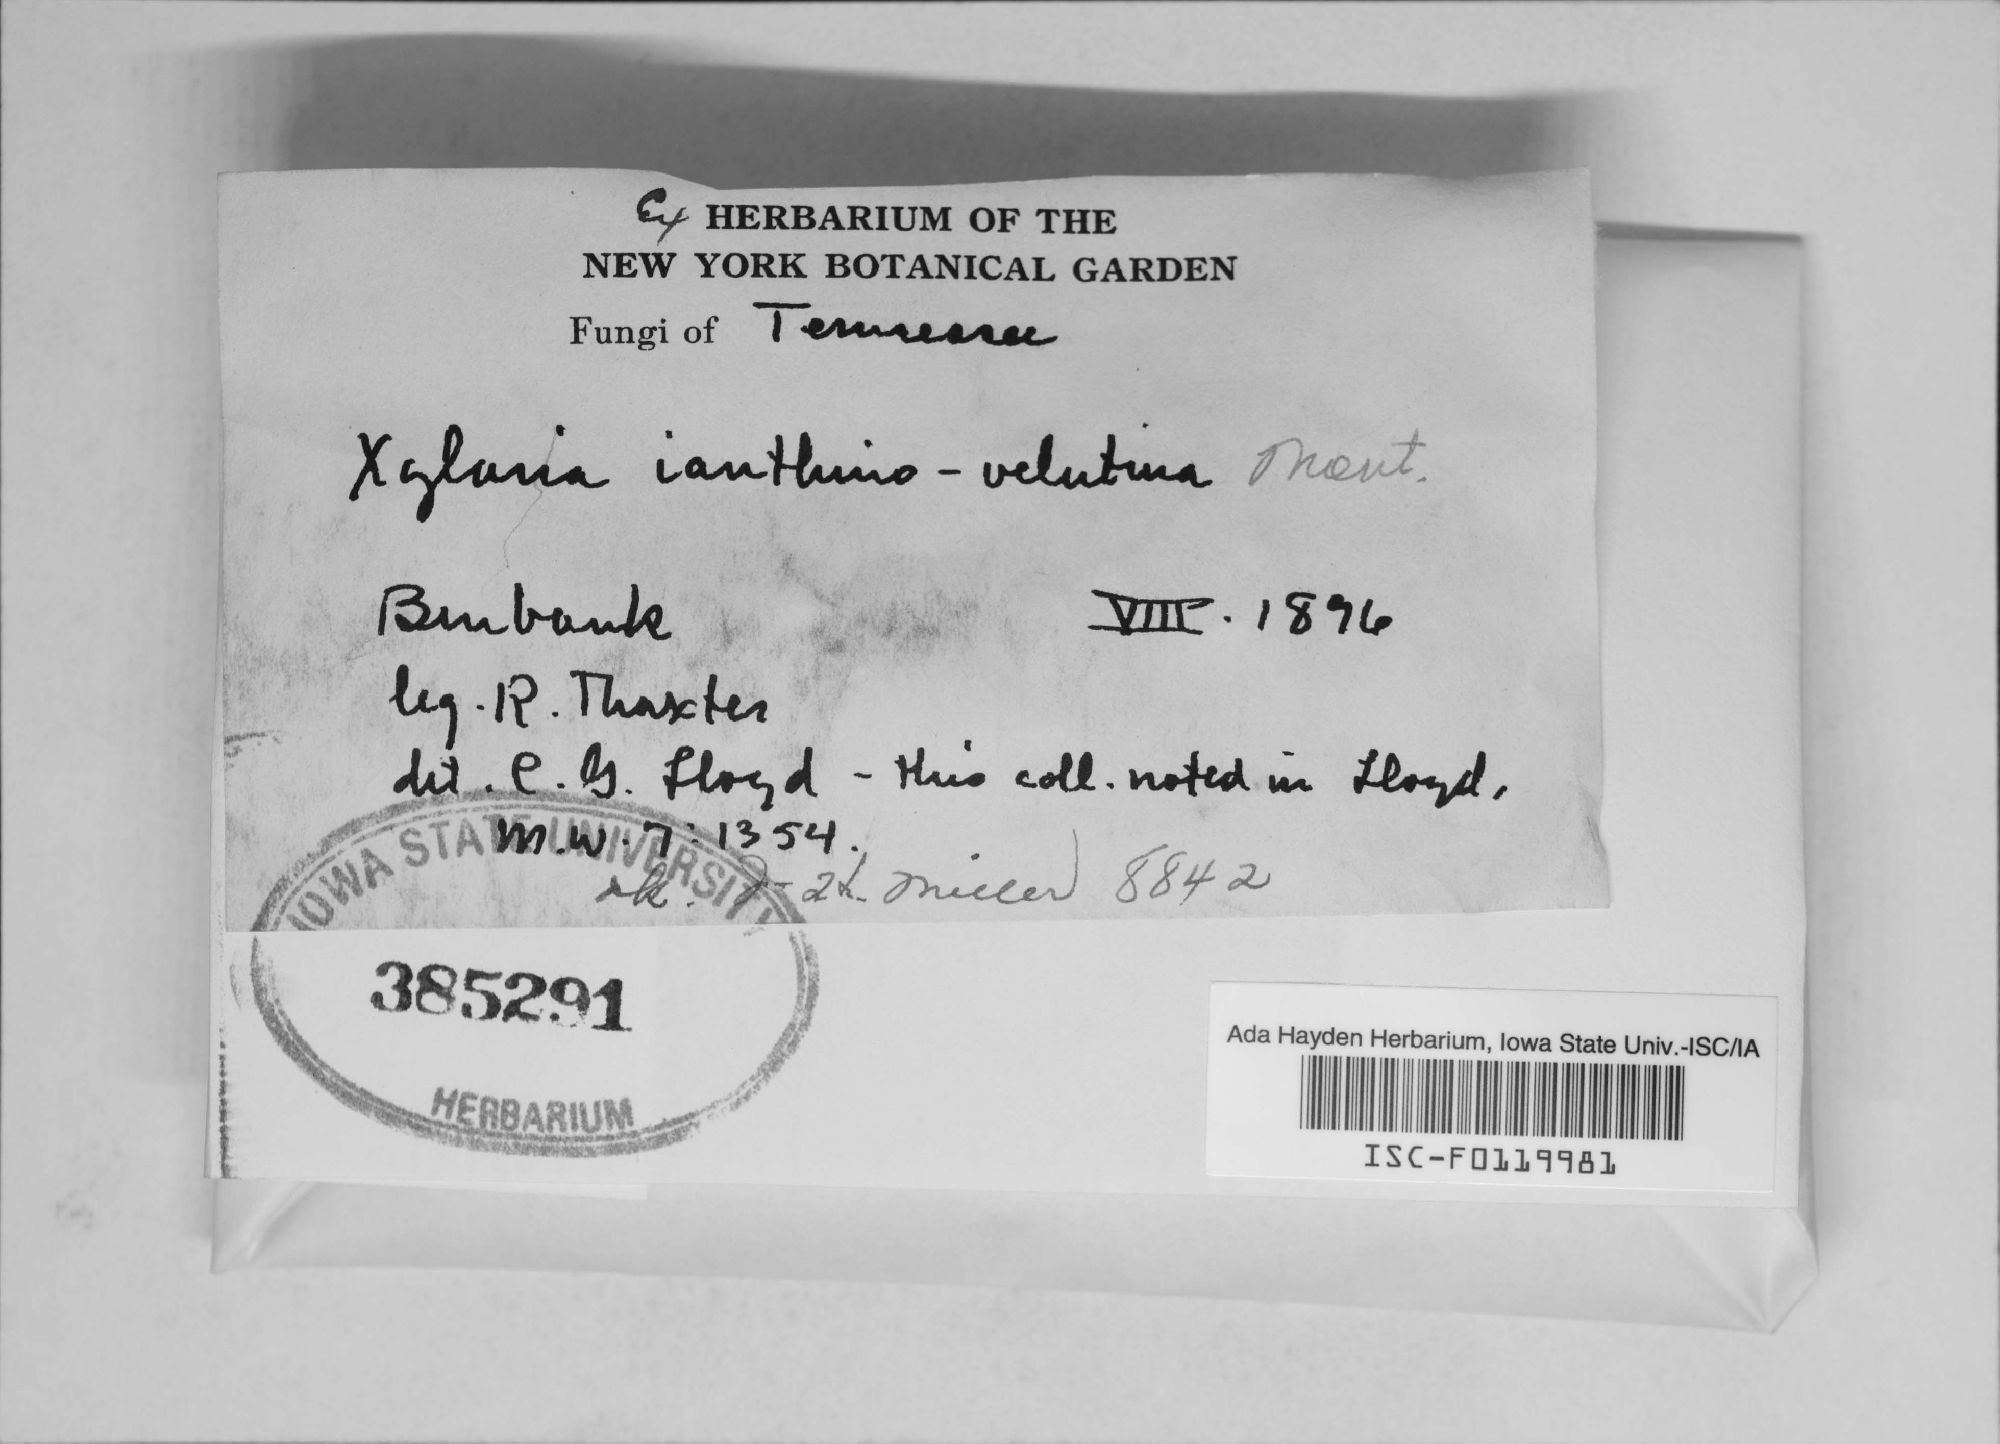 Ex HERBARIUM OF THE
NEW YORK BOTANICAL GARDEN
Fungi of Tennessee
Xylaria ianthino-velutina Mont.
Burbank VIII. 1896
leg. R. Thaxter
det. C. G. Lloyd - this coll. noted in Lloyd,
M.W. 7:1354.
ok. J. H. Miller 8842
IOWA STATE UNIVERSITY
385291
HERBARIUM
Ada Hayden Herbarium, Iowa State Univ.-ISC/IA
ISC-F0119981